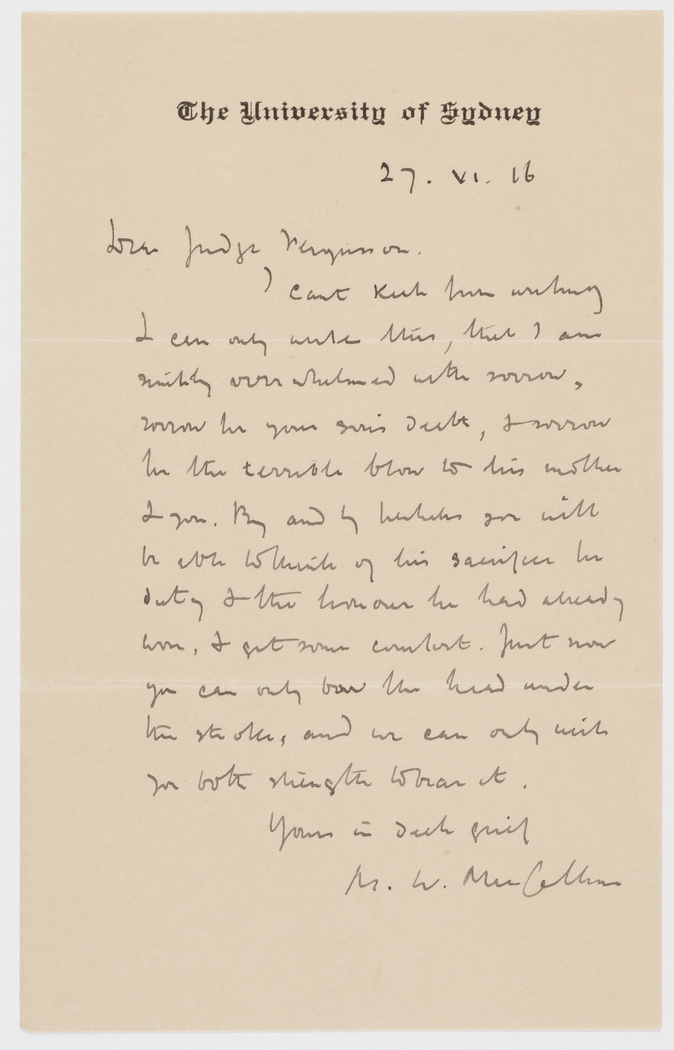 The University of Sydney
27. VI. 16
Dear Judge Ferguson.
I cant keep from writing
I can only write this, that I am
simply overwhelmed with sorrow,
sorrow for your son's death, & sorrow
for the terrible blow to his mother
& you. By and by perhaps you will
be able to think of his sacrifice for
duty & the honour he had already
won, & get some comfort. Just now
you can only bow the head under
the stroke, and we can only wish
you both strength to bear it.
Yours in deep grief
M. W. MacCallum